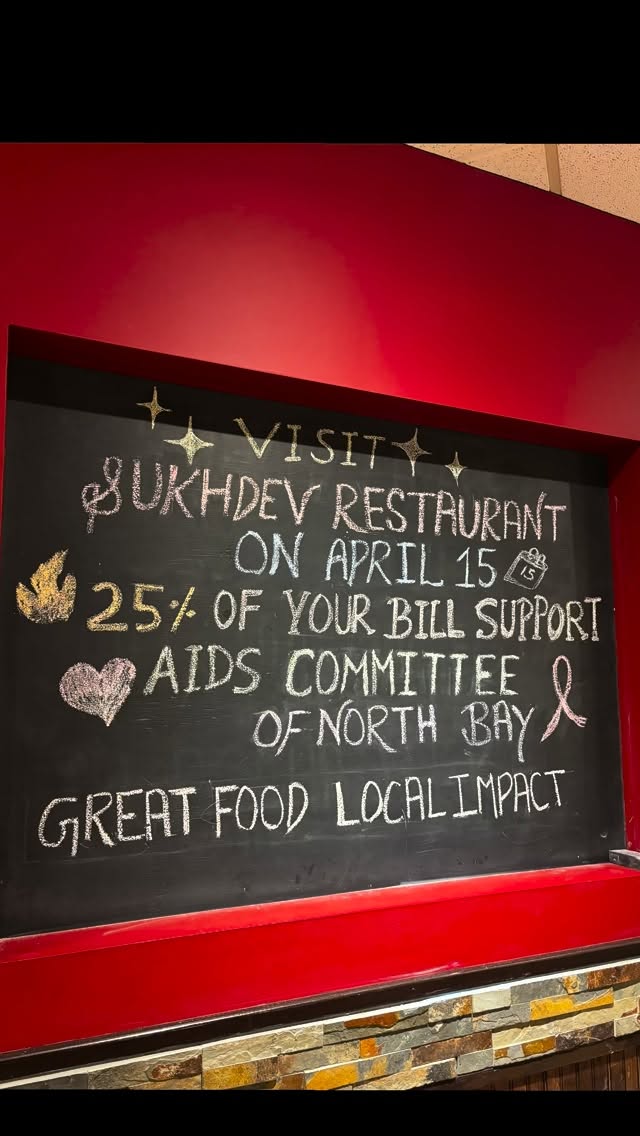 VISIT
SUKHDEV RESTAURANT
ON APRIL 15
15
25% OF YOUR BILL SUPPORT
AIDS COMMITTEE
OF NORTH BAY
GREAT FOOD LOCAL IMPACT